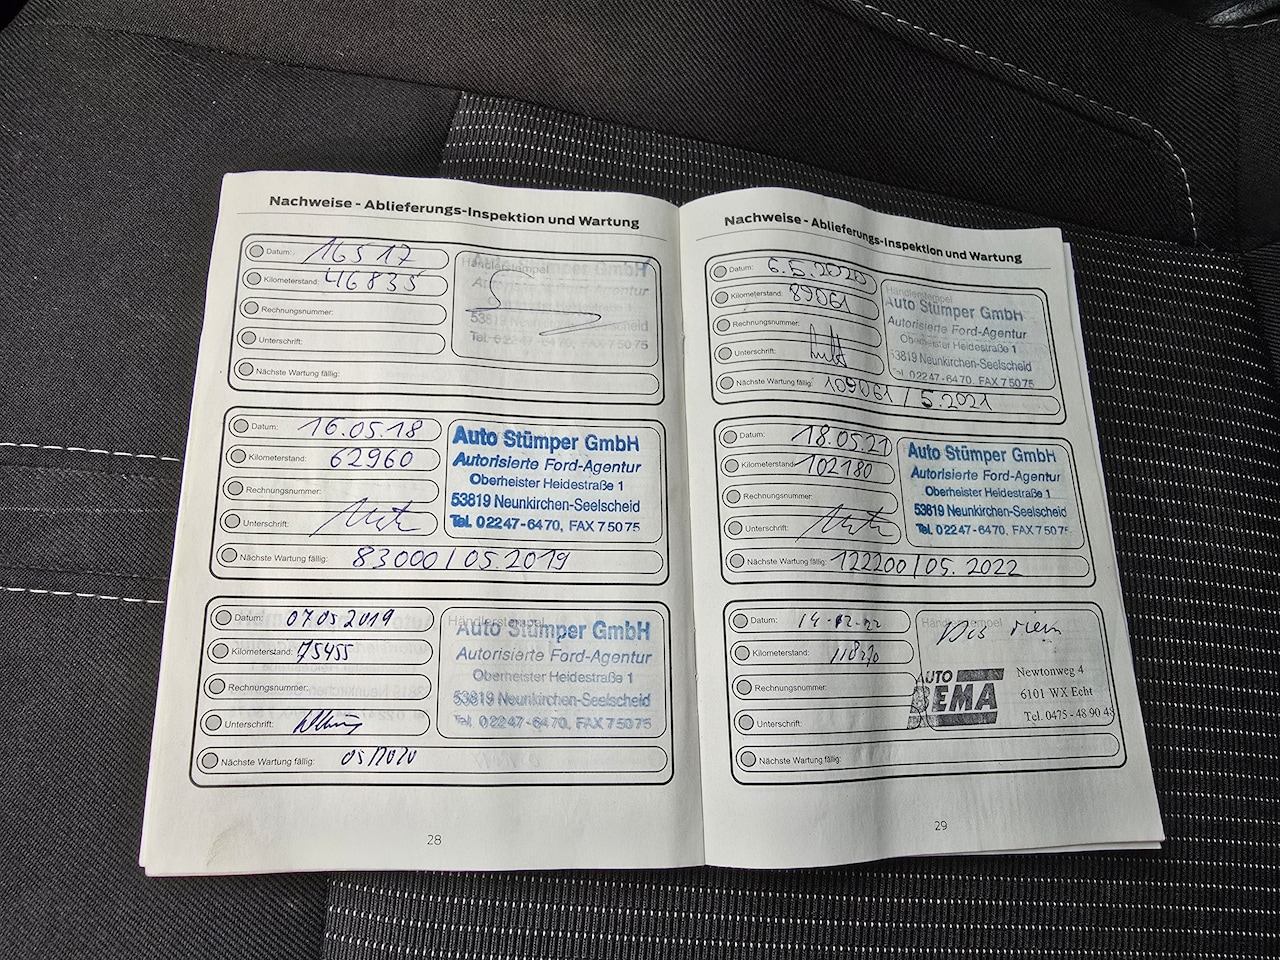 Nachweise - Ablieferungs-Inspektion und Wartung
Datum: 16 5 17
Kilometerstand: 46835
Rechnungsnummer:
Unterschrift:
Nächste Wartung fällig:
Händlerstempel
Auto Stümper GmbH
Autorisierte Ford-Agentur
53819 Neunkirchen-Seelscheid
Tel. 02247-6470, FAX 75075
Datum: 16.05.18
Kilometerstand: 62960
Rechnungsnummer:
Unterschrift:
Nächste Wartung fällig: 83000 / 05.2019
Auto Stümper GmbH
Autorisierte Ford-Agentur
Oberheister Heidestraße 1
53819 Neunkirchen-Seelscheid
Tel. 02247-6470, FAX 75075
Datum: 07.05.2019
Kilometerstand: 75455
Rechnungsnummer:
Unterschrift:
Nächste Wartung fällig: 05/2020
Händlerstempel
Auto Stümper GmbH
Autorisierte Ford-Agentur
Oberheister Heidestraße 1
53819 Neunkirchen-Seelscheid
Tel. 02247-6470, FAX 75075
28
Nachweise - Ablieferungs-Inspektion und Wartung
Datum: 6.5.2020
Kilometerstand: 89061
Rechnungsnummer:
Unterschrift:
Nächste Wartung fällig: 109061 / 5.2021
Händlerstempel
Auto Stümper GmbH
Autorisierte Ford-Agentur
Oberheister Heidestraße 1
53819 Neunkirchen-Seelscheid
Tel. 02247-6470, FAX 75075
Datum: 18.05.21
Kilometerstand: 102180
Rechnungsnummer:
Unterschrift:
Nächste Wartung fällig: 122200 / 05.2022
Auto Stümper GmbH
Autorisierte Ford-Agentur
Oberheister Heidestraße 1
53819 Neunkirchen-Seelscheid
Tel. 02247-6470, FAX 7507
Datum: 14-12-22
Kilometerstand:
Rechnungsnummer:
Unterschrift:
Nächste Wartung fällig:
Händlerstempel
Dis riem
AUTO
BEMA
Newtonweg 4
6101 WX Echt
Tel. 0475 - 48 90 48
29